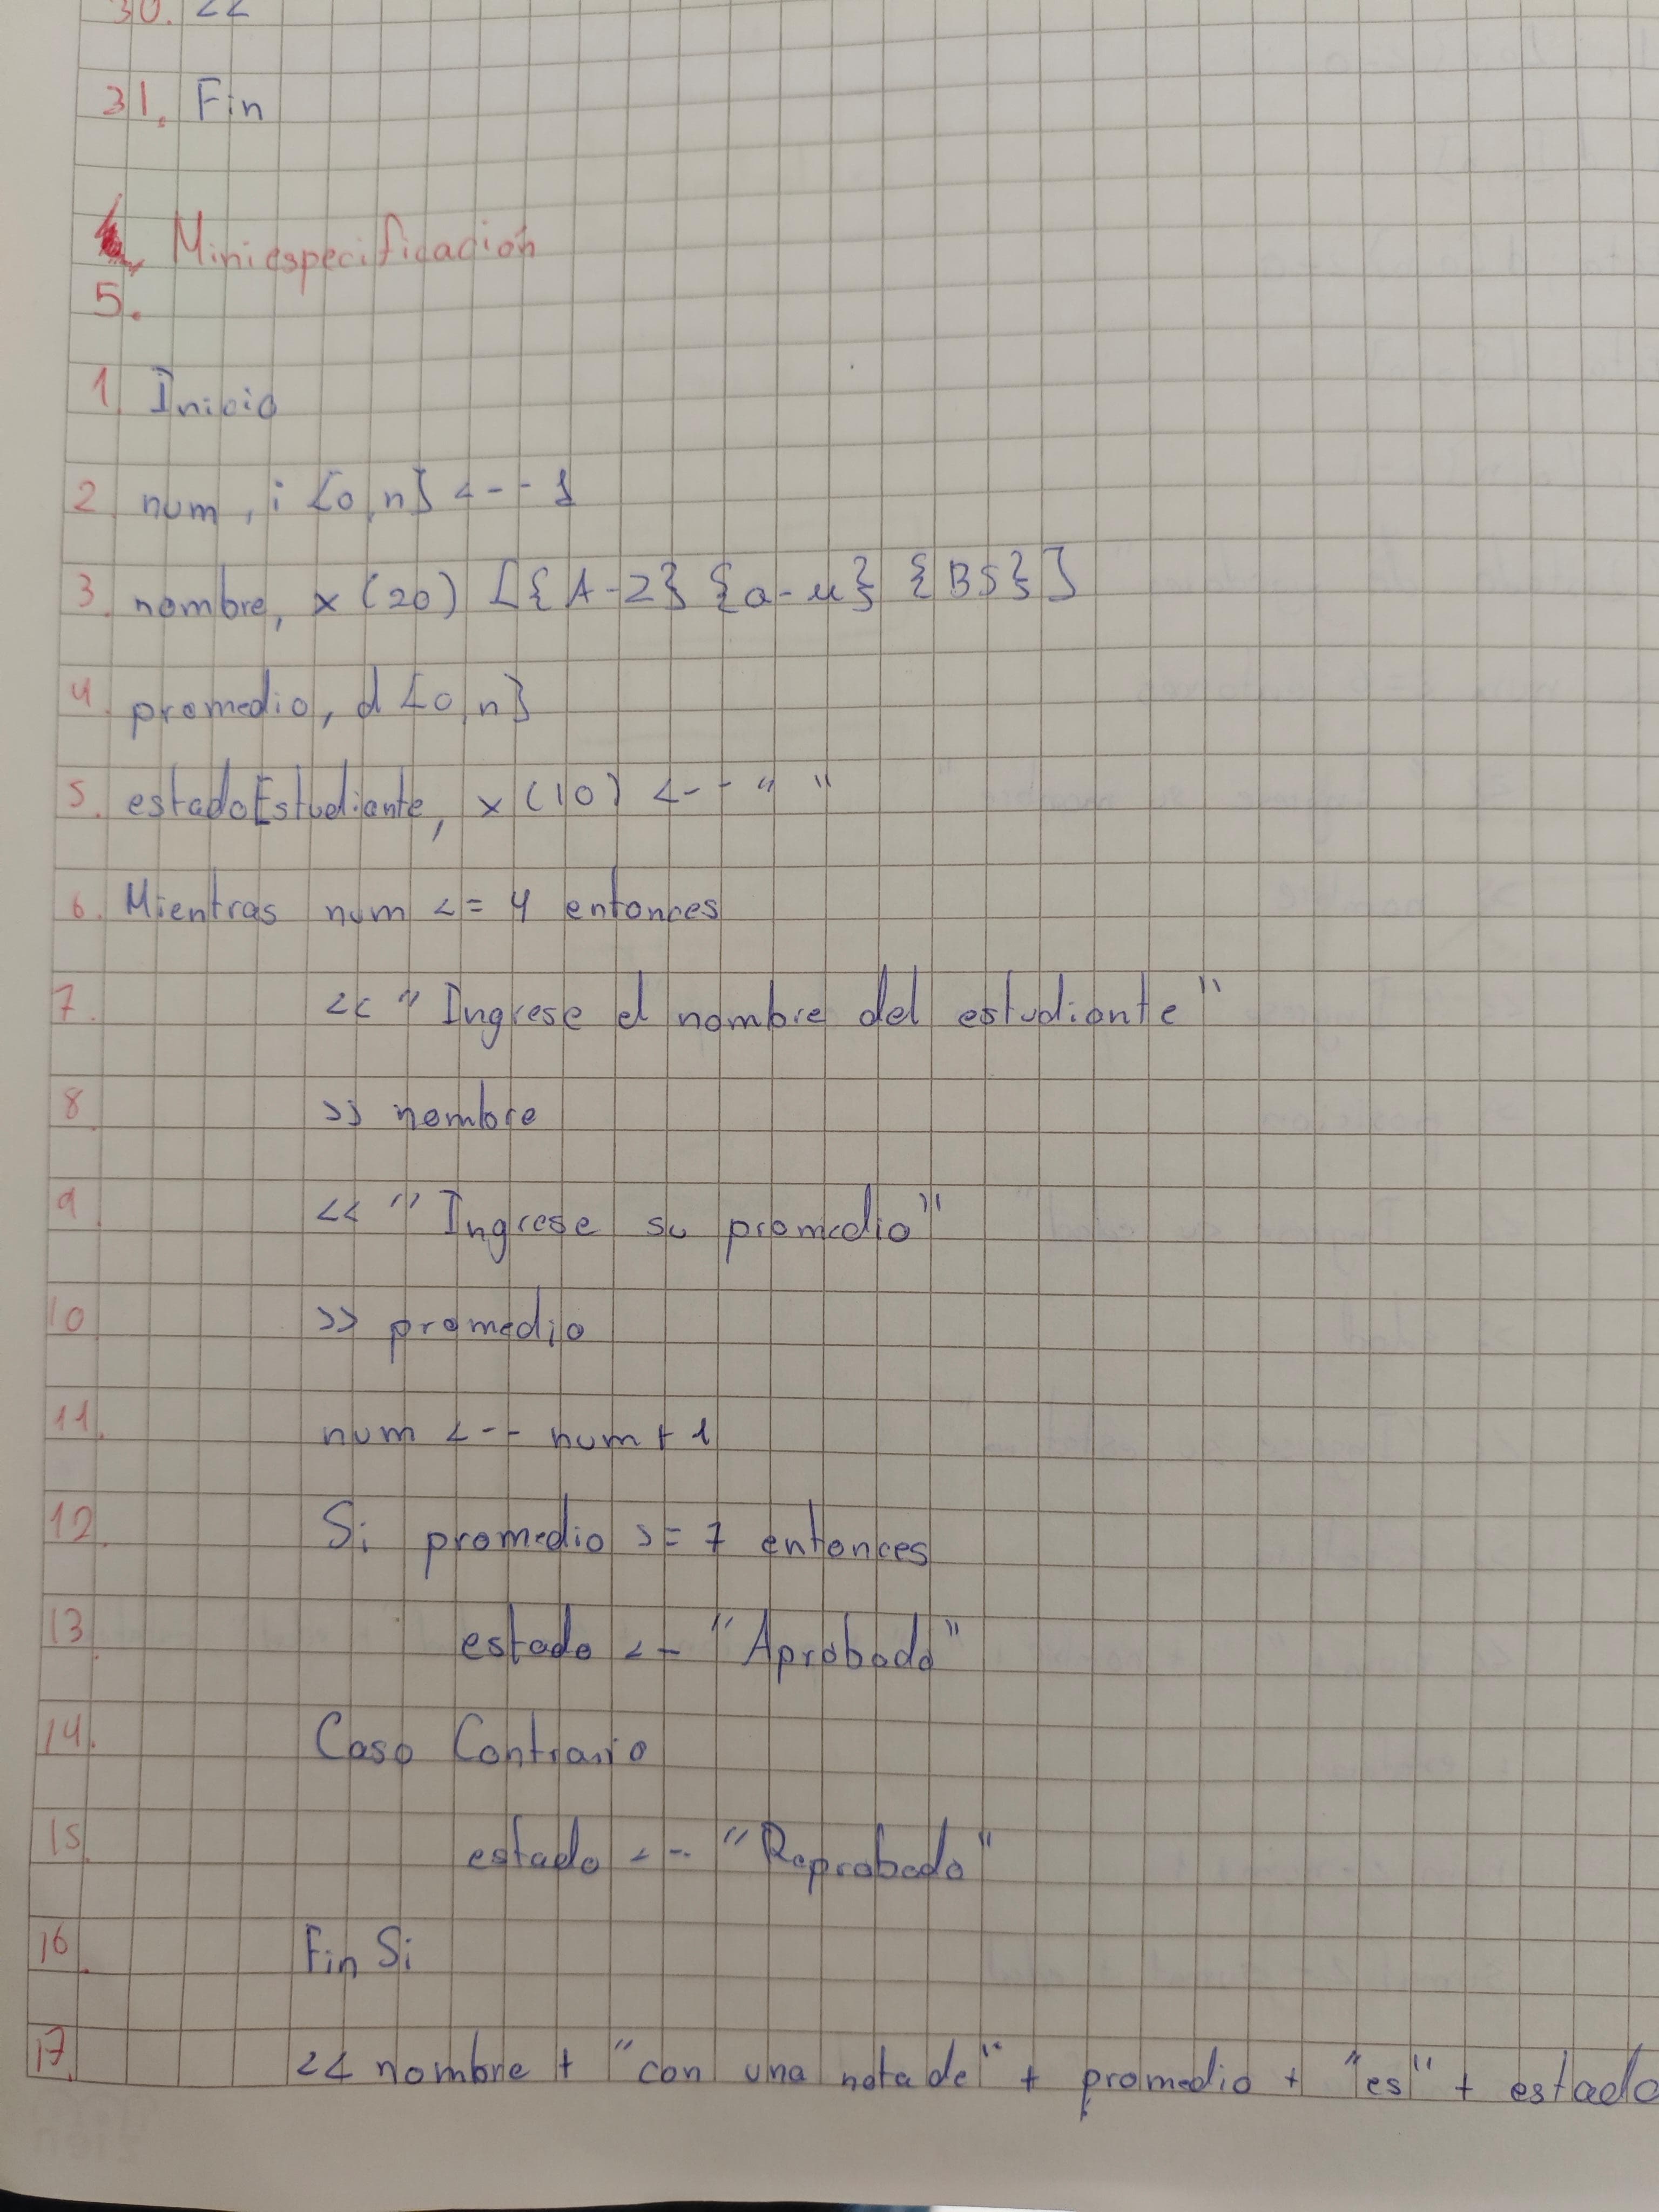 30. <<
31. Fin
Miniespecificación
5.
1. Inicio
2. num, i [0,n] <-- 1
3. nombre, x (20) [{A-Z} {a-z} {BS}]
4. promedio, d [0,n]
5. estadoEstudiante, x (10) <-- " "
6. Mientras num <= 4 entonces
7. << "Ingrese el nombre del estudiante"
8. >> nombre
9. << "Ingrese su promedio"
10. >> promedio
11. num <-- num + 1
12. Si promedio >= 7 entonces
13. estado <-- "Aprobado"
14. Caso Contrario
15. estado <-- "Reprobado"
16. Fin Si
17. << nombre + "con una nota de" + promedio + "es" + estado